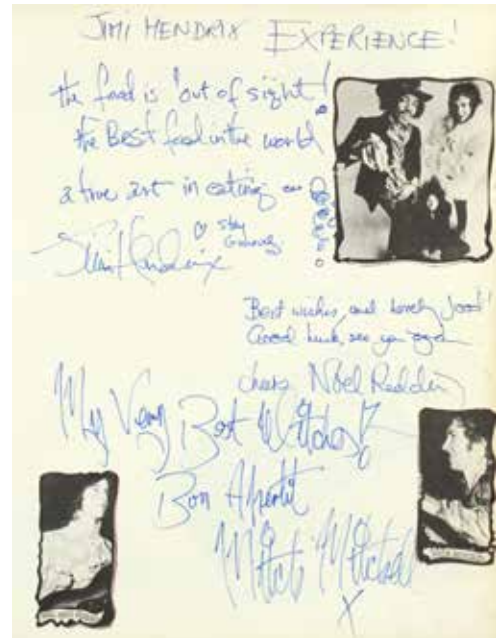 JIMI HENDRIX EXPERIENCE!
the food is 'out of sight!
the Best food in the world
a true art in eating
Stay Groovy
Jimi Hendrix
Best wishes, and lovely food!!
Good luck, see you again
cheers Noel Redding
My Very Best Witches!
Bon Apertit
Mitch Mitchell
X